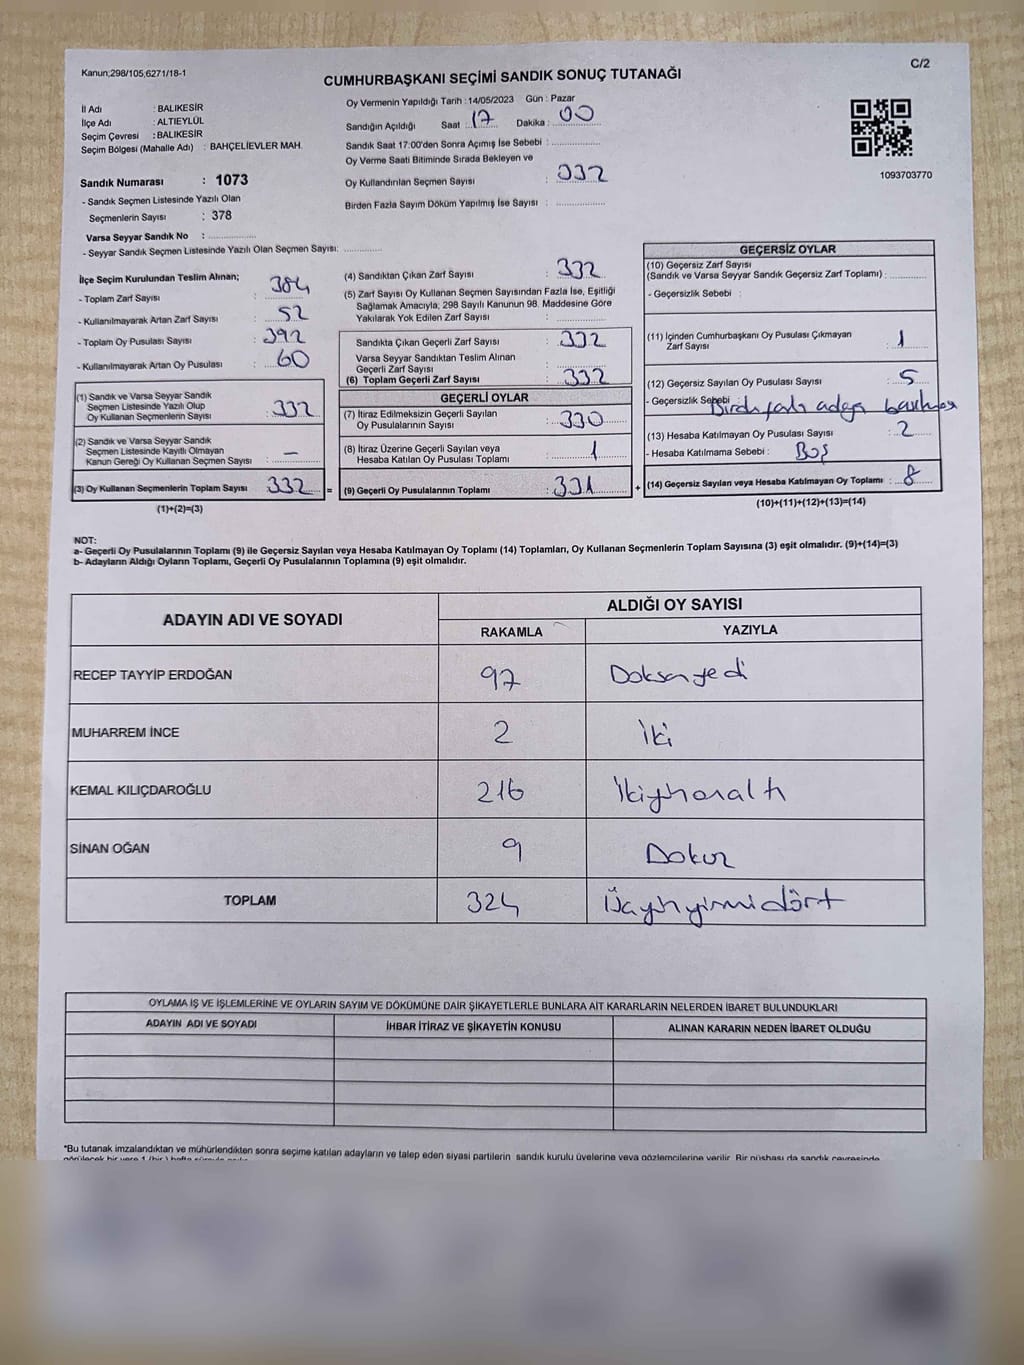 Kanun;298/105,6271/18-1
C/2
CUMHURBAŞKANI SEÇİMİ SANDIK SONUÇ TUTANAĞI
İl Adı : BALIKESİR
İlçe Adı : ALTIEYLÜL
Seçim Çevresi : BALIKESİR
Seçim Bölgesi (Mahalle Adı) : BAHÇELİEVLER MAH.
Oy Vermenin Yapıldığı Tarih : 14/05/2023 Gün : Pazar
Sandığın Açıldığı Saat : 17 Dakika : 00
Sandık Saat 17:00'den Sonra Açımış İse Sebebi :
Oy Verme Saati Bitiminde Sırada Bekleyen ve
Oy Kullandırılan Seçmen Sayısı : 332
Birden Fazla Sayım Döküm Yapılmış İse Sayısı :
1093703770
Sandık Numarası : 1073
- Sandık Seçmen Listesinde Yazılı Olan
Seçmenlerin Sayısı : 378
Varsa Seyyar Sandık No :
- Seyyar Sandık Seçmen Listesinde Yazılı Olan Seçmen Sayısı:
İlçe Seçim Kurulundan Teslim Alınan;
- Toplam Zarf Sayısı : 384
- Kullanılmayarak Artan Zarf Sayısı : 52
- Toplam Oy Pusulası Sayısı : 392
- Kullanılmayarak Artan Oy Pusulası : 60
(1) Sandık ve Varsa Seyyar Sandık
Seçmen Listesinde Yazılı Olup
Oy Kullanan Seçmenlerin Sayısı : 332
(2) Sandık ve Varsa Seyyar Sandık
Seçmen Listesinde Kayıtlı Olmayan
Kanun Gereği Oy Kullanan Seçmen Sayısı : –
(3) Oy Kullanan Seçmenlerin Toplam Sayısı 332 =
(1)+(2)=(3)
(4) Sandıktan Çıkan Zarf Sayısı : 332
(5) Zarf Sayısı Oy Kullanan Seçmen Sayısından Fazla İse, Eşitliği
Sağlamak Amacıyla; 298 Sayılı Kanunun 98. Maddesine Göre
Yakılarak Yok Edilen Zarf Sayısı :
Sandıkta Çıkan Geçerli Zarf Sayısı : 332
Varsa Seyyar Sandıktan Teslim Alınan
Geçerli Zarf Sayısı :
(6) Toplam Geçerli Zarf Sayısı : 332
GEÇERLİ OYLAR
(7) İtiraz Edilmeksizin Geçerli Sayılan
Oy Pusulalarının Sayısı : 330
(8) İtiraz Üzerine Geçerli Sayılan veya
Hesaba Katılan Oy Pusulası Toplamı : 1
(9) Geçerli Oy Pusulalarının Toplamı : 331 +
GEÇERSİZ OYLAR
(10) Geçersiz Zarf Sayısı
(Sandık ve Varsa Seyyar Sandık Geçersiz Zarf Toplamı) :
- Geçersizlik Sebebi :
(11) İçinden Cumhurbaşkanı Oy Pusulası Çıkmayan
Zarf Sayısı : 1
(12) Geçersiz Sayılan Oy Pusulası Sayısı : 5
- Geçersizlik Sebebi
(13) Hesaba Katılmayan Oy Pusulası Sayısı : 2
- Hesaba Katılmama Sebebi : Boş
(14) Geçersiz Sayılan veya Hesaba Katılmayan Oy Toplamı : 8
(10)+(11)+(12)+(13)=(14)
NOT:
a- Geçerli Oy Pusulalarının Toplamı (9) ile Geçersiz Sayılan veya Hesaba Katılmayan Oy Toplamı (14) Toplamları, Oy Kullanan Seçmenlerin Toplam Sayısına (3) eşit olmalıdır. (9)+(14)=(3)
b- Adayların Aldığı Oyların Toplamı, Geçerli Oy Pusulalarının Toplamına (9) eşit olmalıdır.
ADAYIN ADI VE SOYADI
ALDIĞI OY SAYISI
RAKAMLA YAZIYLA
RECEP TAYYİP ERDOĞAN 97 Doksanyedi
MUHARREM İNCE 2 İki
KEMAL KILIÇDAROĞLU 216 İkiyüzonaltı
SİNAN OĞAN 9 Dokuz
TOPLAM 324 Üçyüzyirmidört
OYLAMA İŞ VE İŞLEMLERİNE VE OYLARIN SAYIM VE DÖKÜMÜNE DAİR ŞİKAYETLERLE BUNLARA AİT KARARLARIN NELERDEN İBARET BULUNDUKLARI
ADAYIN ADI VE SOYADI İHBAR İTİRAZ VE ŞİKAYETİN KONUSU ALINAN KARARIN NEDEN İBARET OLDUĞU
*Bu tutanak imzalandıktan ve mühürlendikten sonra seçime katılan adayların ve talep eden siyasi partilerin sandık kurulu üyelerine veya gözlemcilerine verilir. Bir nüshası da sandık çevresinde